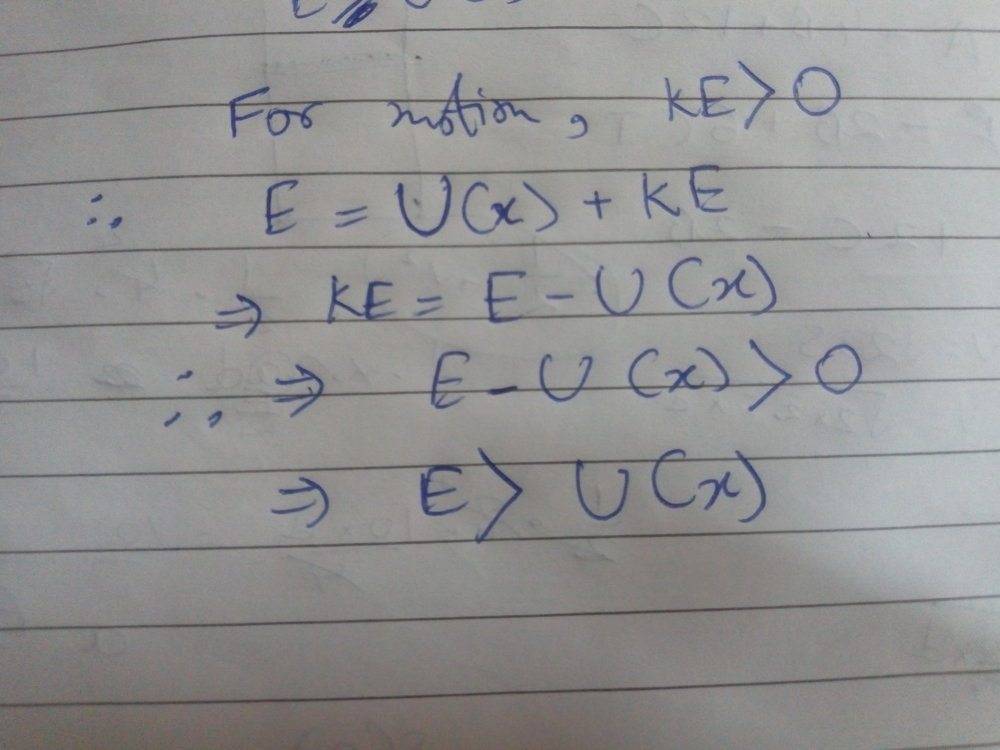 For motion, KE > 0
∴ E = U(x) + KE
⇒ KE = E - U(x)
∴ ⇒ E - U(x) > 0
⇒ E > U(x)